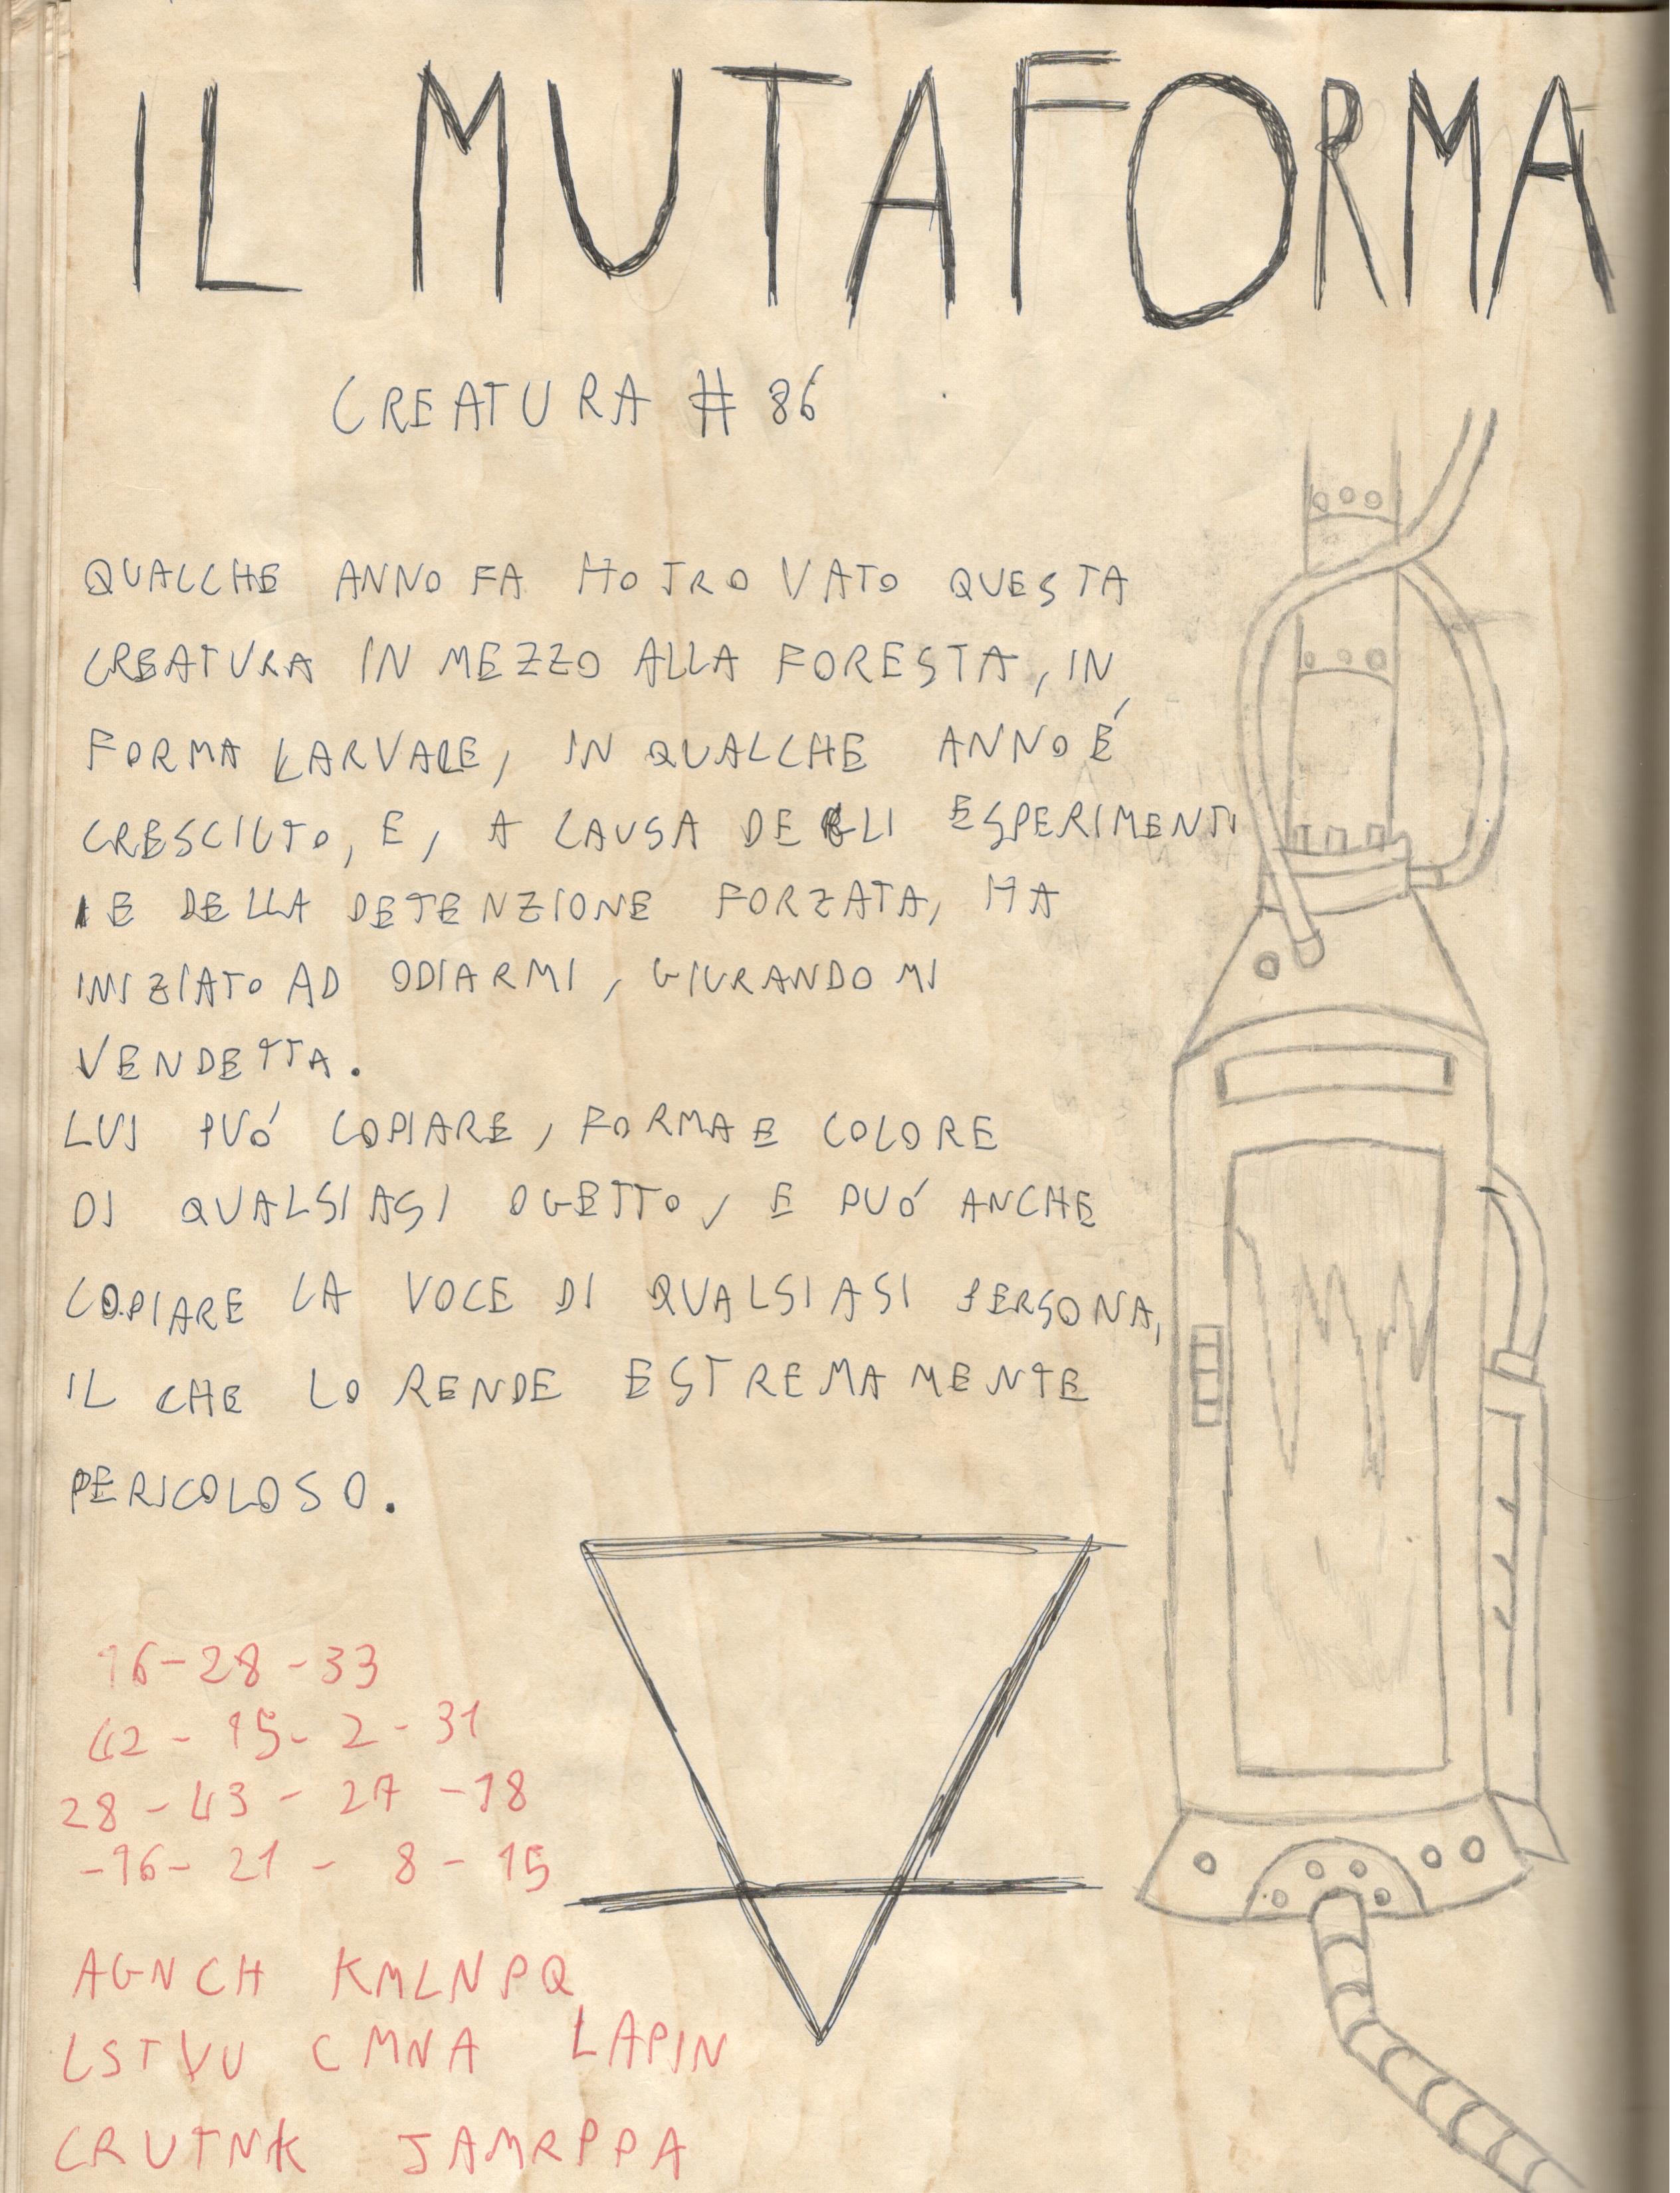 IL MUTAFORMA
CREATURA # 86
QUALCHE ANNO FA HO TROVATO QUESTA
CREATURA IN MEZZO ALLA FORESTA, IN
FORMA LARVALE, IN QUALCHE ANNO É
CRESCIUTO, E, A CAUSA DEGLI ESPERIMENTI
E DELLA DETENZIONE FORZATA, HA
INIZIATO AD ODIARMI, GIURANDOMI
VENDETTA.
LUI PUÓ COPIARE, FORMA E COLORE
DI QUALSIASI OGETTO, E PUÓ ANCHE
COPIARE LA VOCE DI QUALSIASI PERSONA,
IL CHE LO RENDE ESTREMAMENTE
PERICOLOSO.
16-28-33
42-15-2-31
28-43-27-18
-16-21-8-15
AGNCH KMLNPQ
LSTVU CMNA LAPIN
CRUTNK JAMRPPA